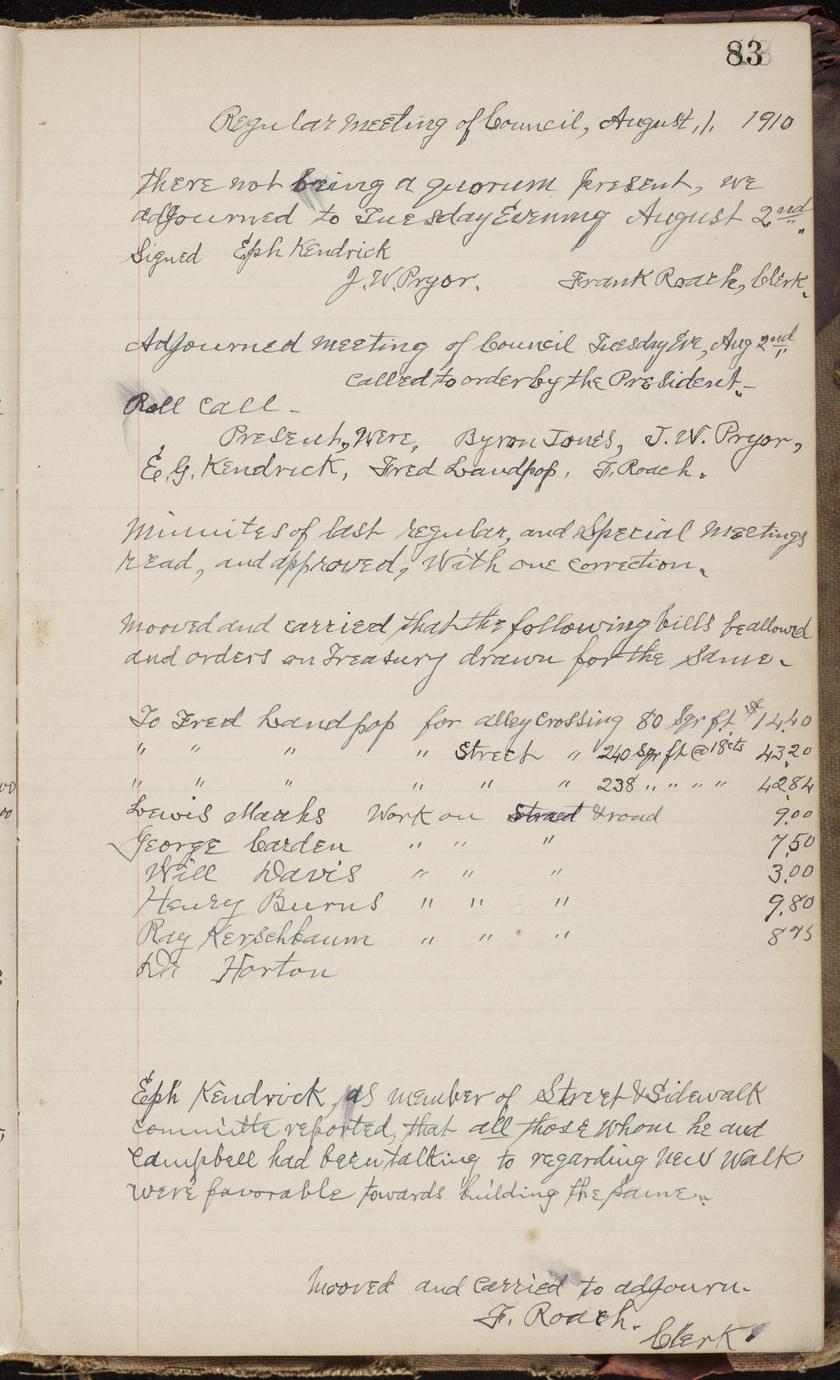 83
Regular Meeting of Council, August, 1. 1910
There not being a quorum present, we
adjourned to Tuesday Evening August 2nd.
Signed Eph Kendrick
J. W. Pryor. Frank Roach, Clerk.
Adjourned Meeting of Council Tuesday Eve, Aug 2nd
Called to order by the President.
Roll Call -
Present, Were, Byron Jones, J. W. Pryor,
E. G. Kendrick, Fred Landpop, F. Roach.
Minnites of last regular, and Special Meetings
read, and approved, With one correction.
Mooved and carried that the following bills be allowed
and orders on Treasury drawn for the same.
To Fred Landpop for alley Crossing 80 Sqr ft 14.40
" " " " Street " 240 Sqr ft @ 18cts 43.20
" " " " " " 238 " " " " 42.84
Lewis Marks Work on Straet & road 9.00
George Carden " " " 7.50
Will Davis " " " 3.00
Henry Burns " " " 9.80
Ray Kerschbaum " " " 8 75
Dr Horton
Eph Kendrick, as member of Street & Sidewalk
committe reported, that all those Whom he and
Campbell had been talking to regarding New Walk
were favorable towards building the same.
Mooved and carried to adjourn.
F. Roach.
Clerk